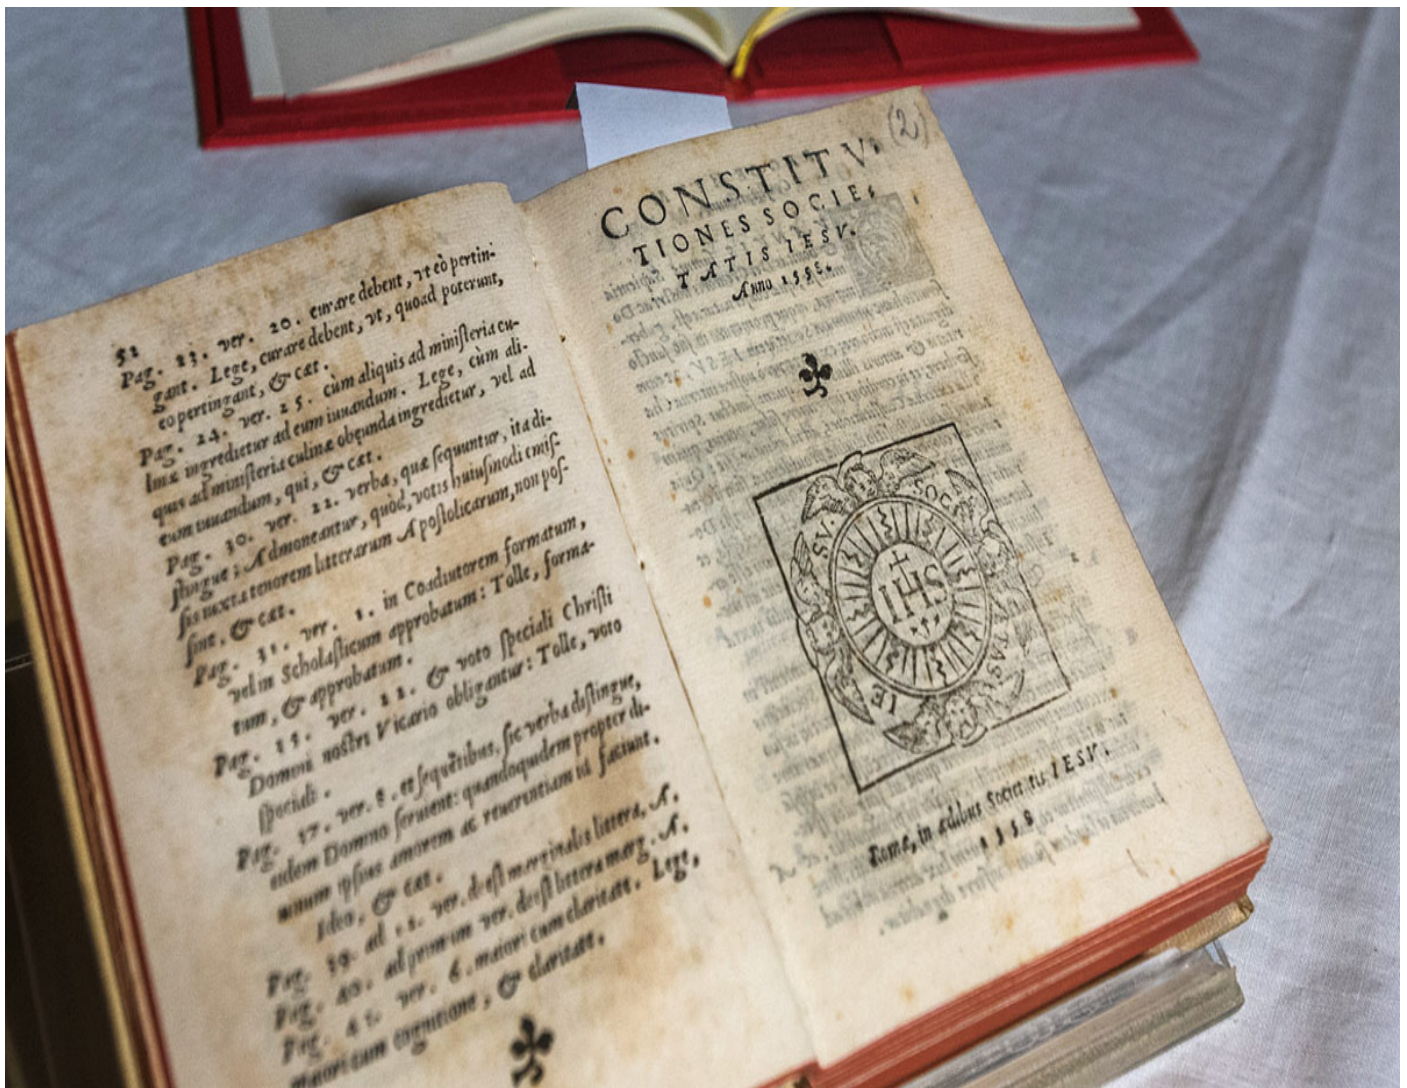 52
Pag. 23. ver. 20. curare debent, vt eò pertin-
gant. Lege, curare debent, vt, quoad poterunt,
eo pertingant, & cæt.
Pag. 24. ver. 25. cùm aliquis ad ministeria cu-
linæ ingredietur ad eum iuuandum. Lege, cùm ali-
quis ad ministeria culinæ obeunda ingredietur, vel ad
eum iuuandum, qui, & cæt.
Pag. 30. ver. 22. verba, quæ sequuntur, ita di-
stingue; Admoneantur, quòd, votis huiusmodi emis-
sis iuxta tenorem litterarum Apostolicarum, non pos-
sint, & cæt.
Pag. 31. ver. 1. in Coadiutorem formatum,
vel in Scholasticum approbatum: Tolle, forma-
tum, & approbatum.
Pag. ver. & voto speciali Christi
Domini nostri Vicario obligantur: Tolle, voto
speciali.
Pag. 37. ver. 8. et sequētibus, sic verba distingue,
eidem Domino seruient: quandoquidem propter di-
uinum ipsius amorem ac reuerentiam id faciunt.
Ideo, & cæt.
Pag. 39. ad ver. deest marginalis littera, A.
Pag. 40. ad primum ver. deest littera marg. A.
Pag. ver. 6. maiori cum claritate. Lege,
maiori cum cognitione, & claritate.
(2)
CONSTITV-
TIONES SOCIE-
TATIS IESV.
Anno 1558.
SOCIETATIS IESV
IHS
Romæ, in ædibus Societatis IESV.
1558